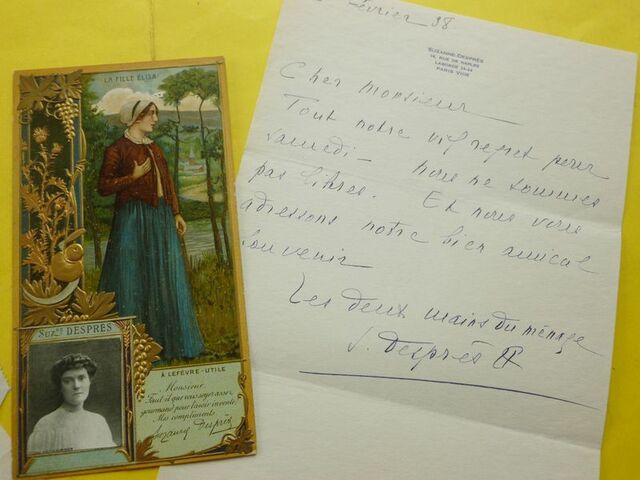 LA FILLE ELISA
SUZNE DESPRÈS
À LEFÈVRE-UTILE
Monsieur,
Faut-il que vous soyez assez
gourmand pour l'avoir inventé.
Mes compliments
Suzanne Desprès
février 38
SUZANNE-DESPRÈS
14, RUE DE NAPLES
LABORDE
PARIS VIIIE
Cher Monsieur
Tout notre vif regret pour
samedi - nous ne sommes
pas libres. Et nous vous
adressons notre bien amical
souvenir
Les deux mains du ménage
S. Desprès